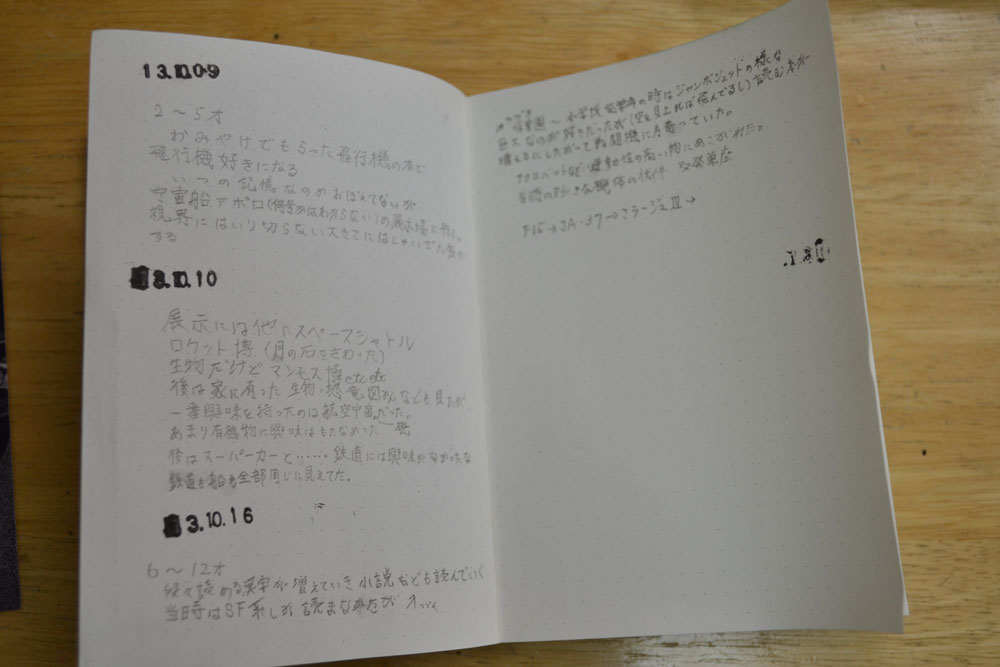 13.10.09
2〜5才
おみやげでもらった飛行機の本で
飛行機好きになる
いつの記憶なのかおぼえてないが、
宇宙船アポロ(何号かはわからない)の展示場に行く。
視界にはいり切らない大きさに
する
3.10.10
展示には他にスペースシャトル
ロケット博(月の石をさわった)
生物だけどマンモス博etc etc
後は家に有った生物・恐竜図かんなども見たが
一番興味を持ったのは航空宇宙だった。
あまり有機物に興味はもたなかった
後はスーパーカーと……鉄道には興味がなかったな
鉄道も船も全部同じに見えてた.
3.10.16
6〜12才
段々読める漢字が増えていき小説なども読んでいく
当時はSF系しか読まなかったが
〜小学校低学年の時はジャンボジェットの様な
巨大なのが好きだったが(空を見上れば飛んでるし)読む本が
増えるにしたがって戦闘機に片寄っていった。
アクロバットなど運動性の高い物にあこがれた。
当時の好きな機体の条件 双発単座
F15→SA-37→ミラージュIII→